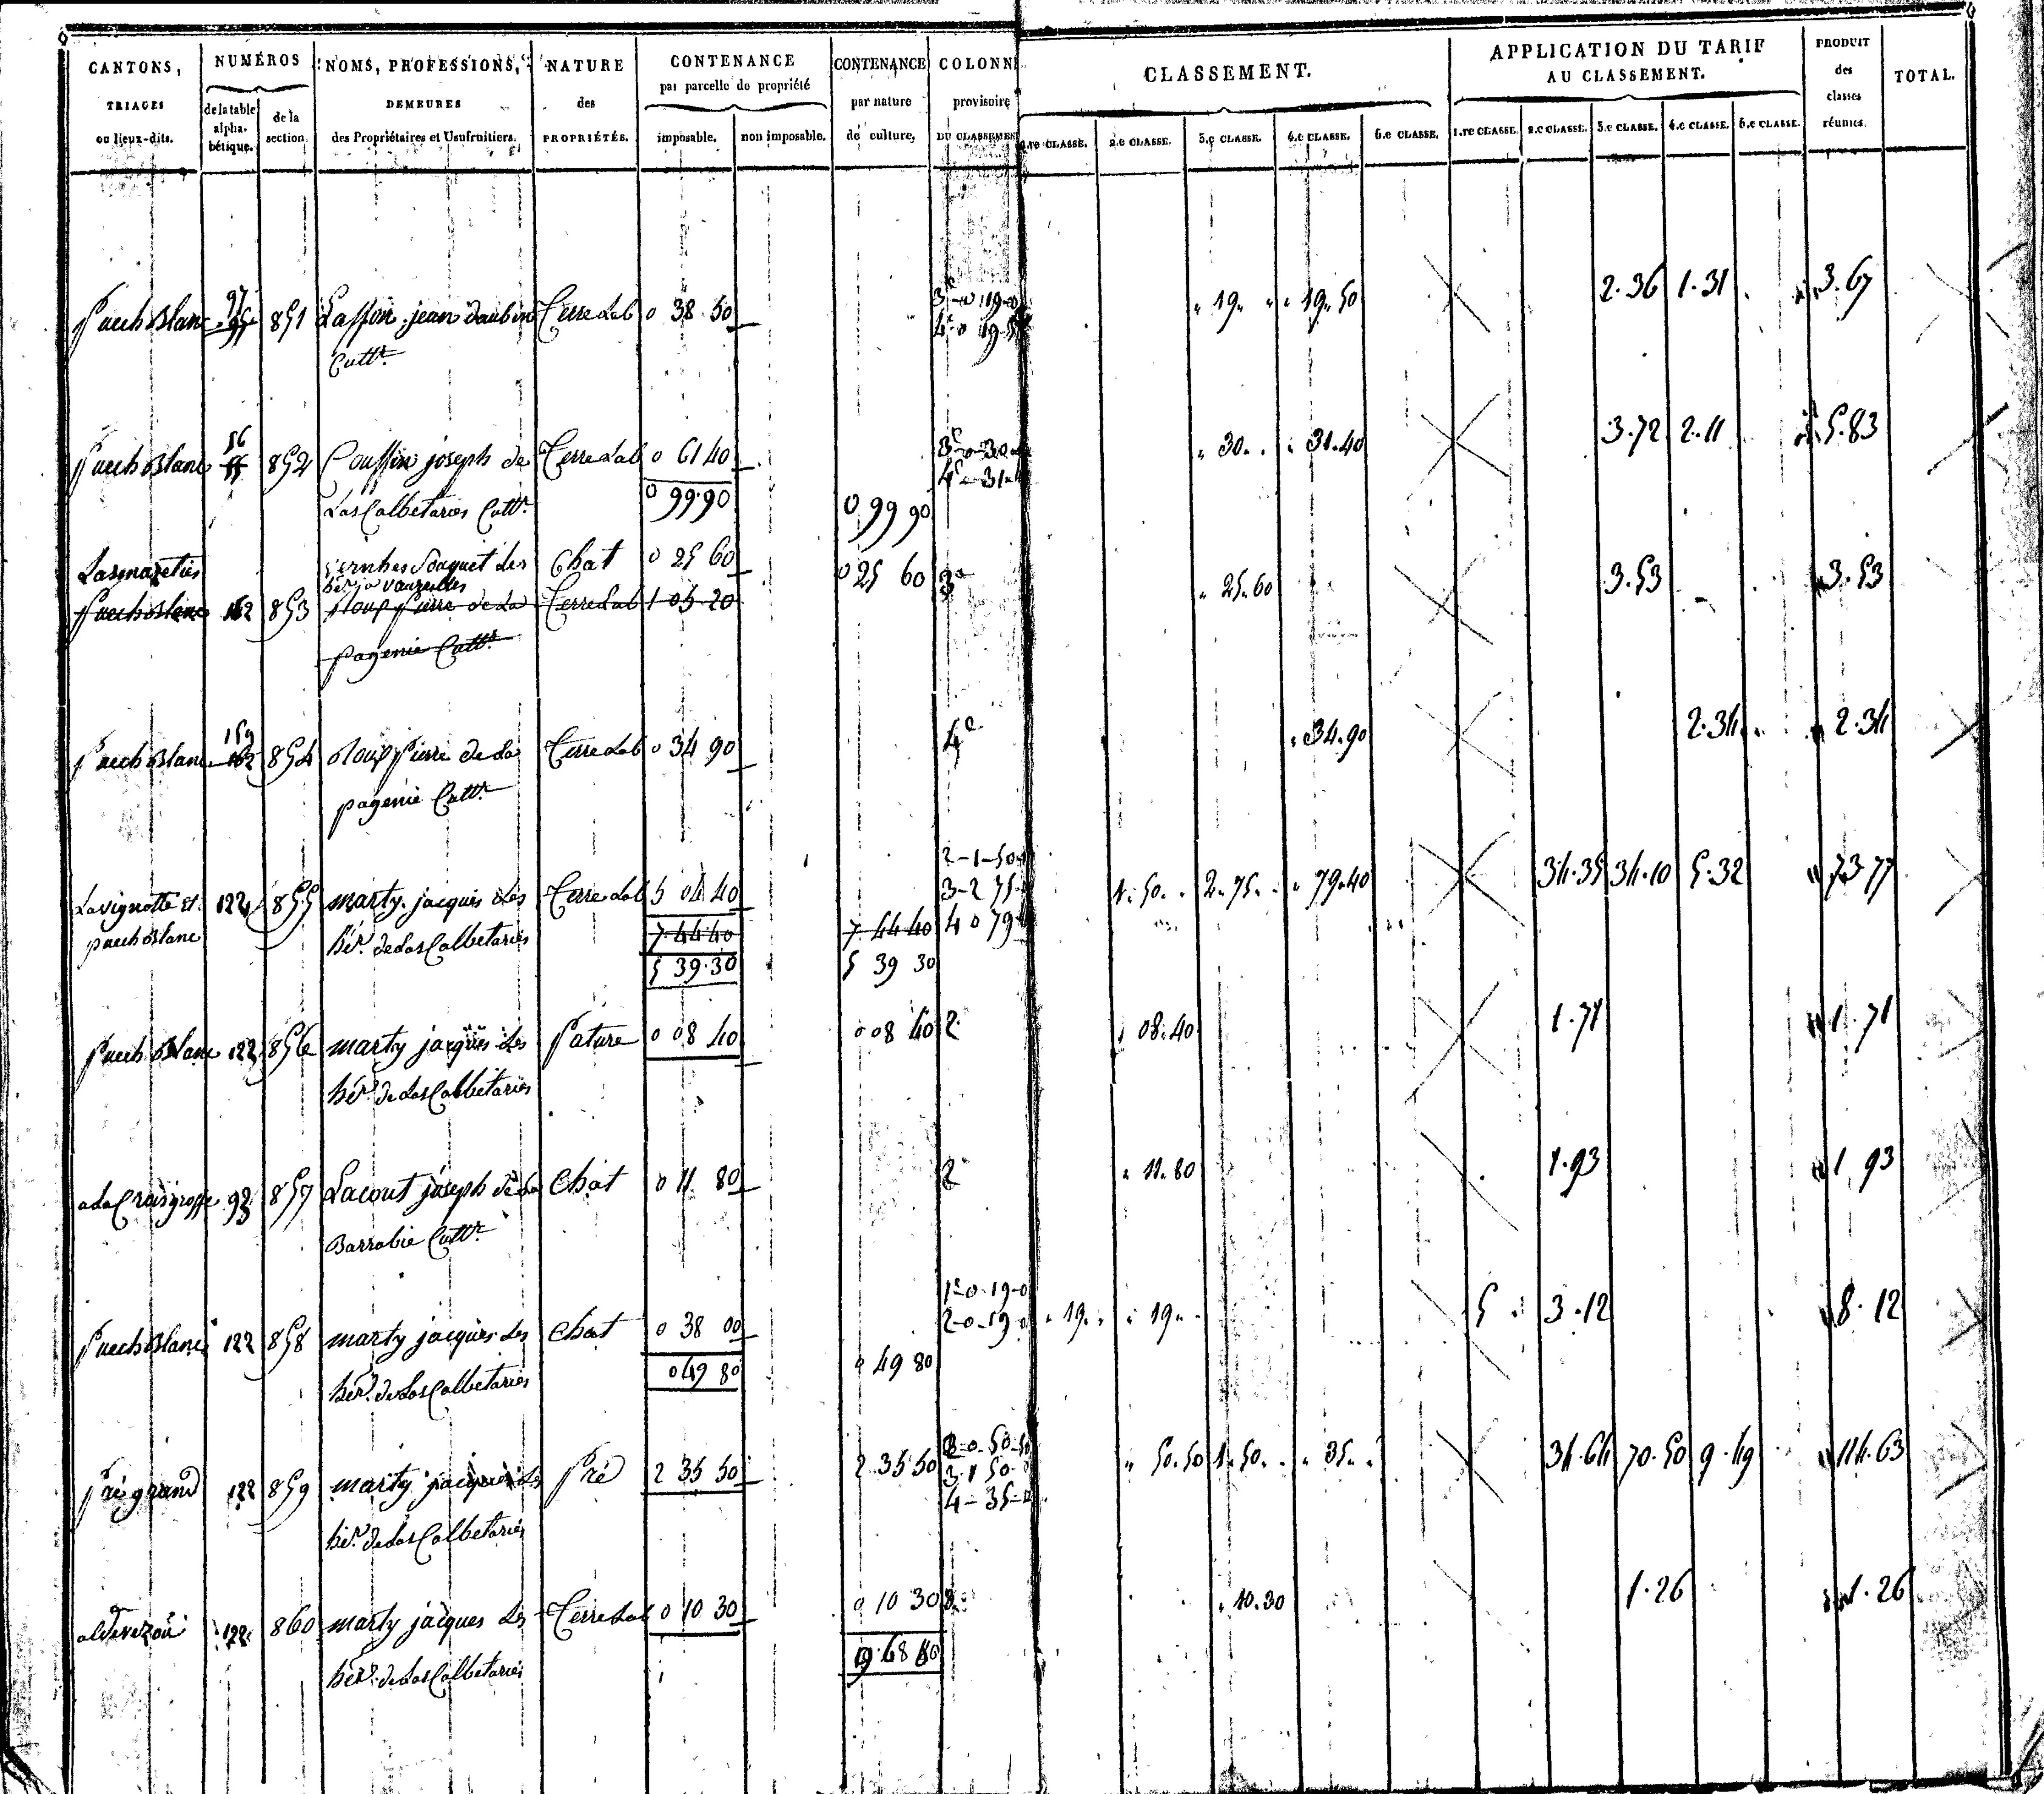 CANTONS, TRIAGES ou lieux-dits. NUMÉROS de la table alphabétique. de la section NOMS, PROFESSIONS, DEMEURES des Propriétaires et Usufruitiers. NATURE des PROPRIÉTÉS. CONTENANCE par parcelle de propriété imposable. non imposable. CONTENANCE par nature de culture, COLONN provisoire DU CLASSEMEN CLASSEMENT. 1.re CLASSE. 2.e CLASSE. 3.e CLASSE. 4.e CLASSE. 5.e CLASSE. APPLICATION DU TARIF AU CLASSEMENT. 1.re CLASSE. 2.e CLASSE. 3.e CLASSE. 4.e CLASSE. 5.e CLASSE. PRODUIT des classes réunies. TOTAL.
97
Puech Blanc 95 851 Laffon jean daubin Terre Lab 0 38 50 3e 0 19 0 " 19 " " 19 50 2.36 1.31 3.67
Cultr. 4e 0 19 5
56
Puech Blanc 55 852 Couffin joseph de Terre Lab 0 61 40 3e 0 30 " 30 " " 31.40 3.72 2.11 5.83
Las Calbetaries Cultr. 0 99 90 0 99 90 4e 31
Lasmazeties Souquet des Chat 0 25 60 0 25 60 3e " 25.60 3.53 3.53
hér. a Vauzelles
Puech Blanc 162 853 Pierre de La Terre Lab 1 05 20
pagenie Cultr.
159
Puech Blanc 162 854 Pierre de La Terre Lab 0 34 90 4e " 34.90 2.34 2.34
pagenie Cultr.
2-1-50
Lavignotte et 122 855 marty jacques Les Terre Lab 5 04 40 3-2 75 1.50 " 2.75 " " 79.40 34.35 34.10 5.32 73 77
puech Blanc hér. de Las Calbetaries 7 44 40 7 44 40 4 0 79
5 39 30 5 39 30
Puech Blanc 122 856 marty jacques Les Pature 0 08 40 0 08 40 2 " 08.40 1.71 1.71
hér. de Las Calbetaries
a La Croisgrosse 93 857 Lacout joseph de La Chat 0 11 80 2 " 11.80 1.93 1 93
Barrabie Cultr.
1e-0-19-0
Puech Blanc 122 858 marty jacques Les Chat 0 38 00 2-0-19 " 19 " " 19 " 5 " 3.12 8.12
hér. de Las Calbetaries 0 49 80 0 49 80
Pré grand 122 859 marty jacques Les Pré 2 35 50 2 35 50 2-0-50-50 " 50.50 1.50 " " 35 " 34.64 70.50 9.49 114.63
3-1 50
hér. de Las Calbetaries 4-35
122 860 marty jacques Les Terre Lab 0 10 30 0 10 30 3 " 10.30 1.26 1.26
hér. de Las Calbetaries 9 68 80